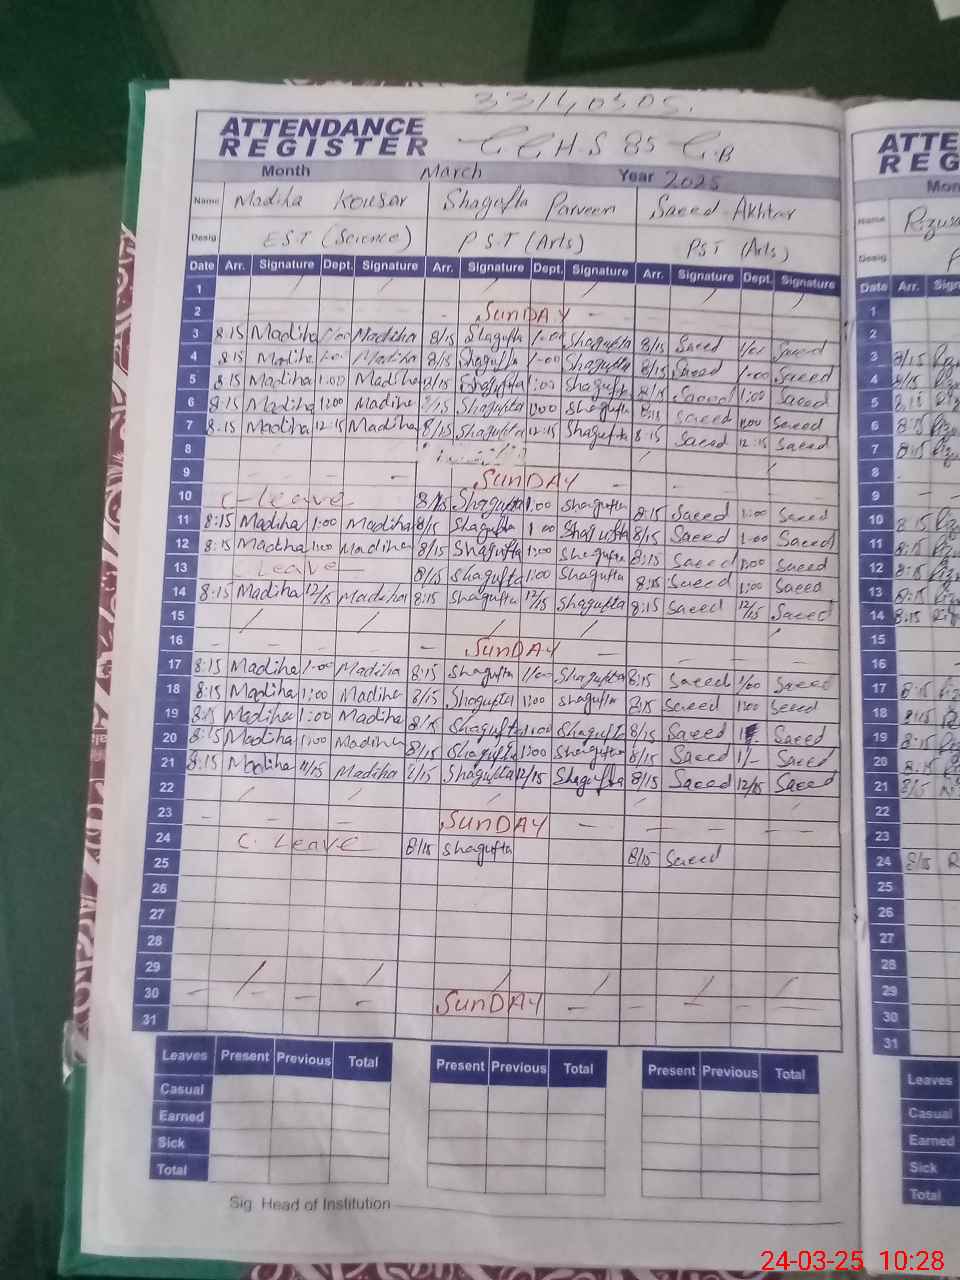 33140505.
ATTENDANCE REGISTER H.S 85
Month March Year 2025
Name Madiha Kousar Shagufta Parveen Saeed Akhtar
Desig EST (Science) PST (Arts) PST (Arts)
Date Arr. Signature Dept. Signature Arr. Signature Dept. Signature Arr. Signature Dept. Signature
1
2 SUNDAY
3 8:15 Madiha Madiha 8/15 Shagufta 1-00 Shagufta 8/15 Saeed Saeed
4 8:15 Madiha Madiha 8/15 Shagufta 1-00 Shagufta 8/15 Saeed 1-00 Saeed
5 8:15 Madiha 1:00 Madiha 8/15 Shagufta 1:00 Shagufta 8/15 Saeed 1:00 Saeed
6 8:15 Madiha 1:00 Madiha 8/15 Shagufta 1:00 Shagufta 8:15 Saeed 1:00 Saeed
7 8:15 Madiha 12:15 Madiha 8/15 Shagufta 12:15 Shagufta 8:15 Saeed 12:15 Saeed
8
9 SUNDAY
10 C-Leave 8/15 Shagufta 1:00 Shagufta 8:15 Saeed 1:00 Saeed
11 8:15 Madiha 1:00 Madiha 8/15 Shagufta 1 00 Shagufta 8/15 Saeed 1-00 Saeed
12 8:15 Madiha 1:00 Madiha 8/15 Shagufta 1:00 Shagufta 8:15 Saeed 1:00 Saeed
13 Leave 8/15 Shagufta 1:00 Shagufta 8:15 Saeed 1:00 Saeed
14 8:15 Madiha 12/15 Madiha 8:15 Shagufta 12/15 Shagufta 8:15 Saeed 12/15 Saeed
15
16 SUNDAY
17 8:15 Madiha 1-00 Madiha 8:15 Shagufta 1/00 Shagufta 8:15 Saeed 1/00 Saeed
18 8:15 Madiha 1:00 Madiha 8/15 Shagufta 1:00 Shagufta 8:15 Saeed 1:00 Saeed
19 8:15 Madiha 1:00 Madiha 8/15 Shagufta 1:00 Shagufta 8/15 Saeed Saeed
20 8:15 Madiha 1:00 Madiha 8/15 Shagufta 1:00 Shagufta 8/15 Saeed 1/- Saeed
21 8:15 Madiha Madiha 8/15 Shagufta 12/15 Shagufta 8/15 Saeed 12/15 Saeed
22
23 SUNDAY
24 C. Leave 8/15 Shagufta 8/15 Saeed
25
26
27
28
29
30 SUNDAY
31
Leaves Present Previous Total Present Previous Total Present Previous Total
Casual
Earned
Sick
Total
Sig. Head of Institution
Name
Desig
Date Arr.
1
2
3 8/15
4 8/15
5 8:15
6 8:15
7 8:15
8
9
10 8:15
11 8:15
12 8:15
13 8:15
14 8:15
15
16
17 8:15
18 8:15
19 8:15
20 8:15
21 8/15
22
23
24 8/15
25
26
27
28
29
30
31
Leaves
Casual
Earned
Sick
Total
24-03-25 10:28